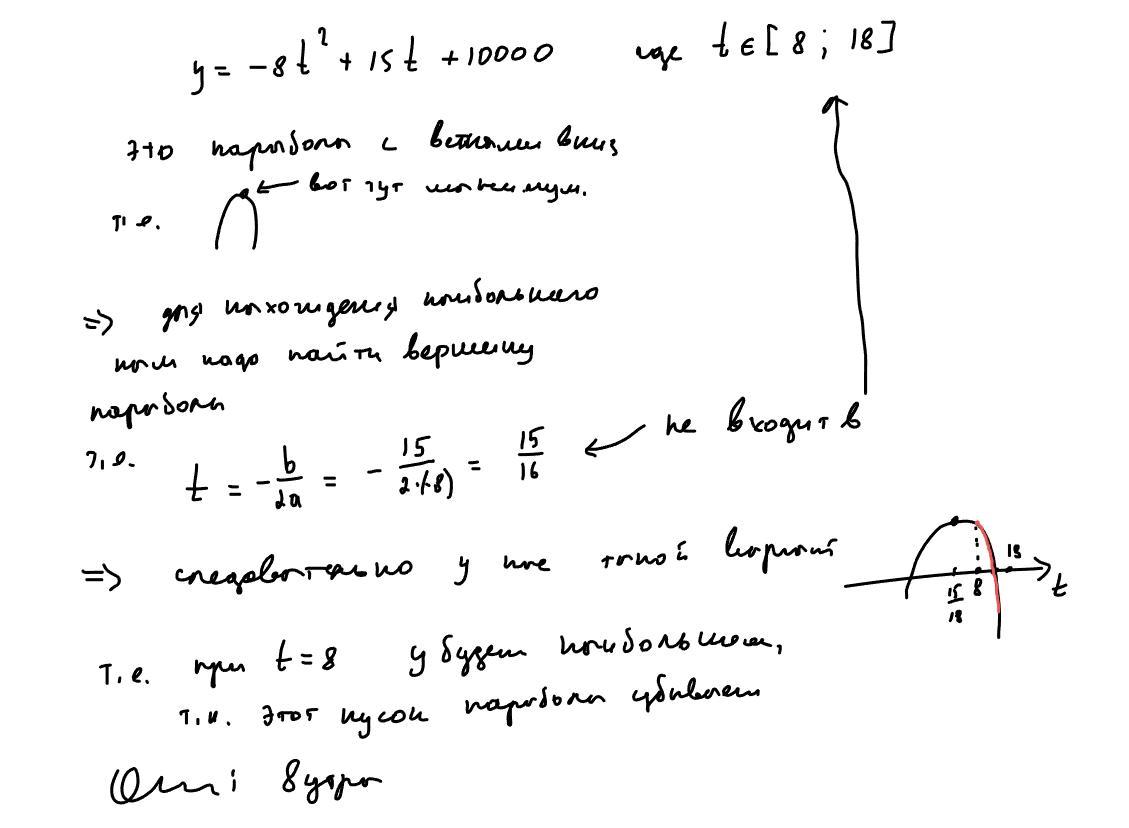 y = -8t² + 15t + 10000 где t ∈ [8; 18]
это парабола с ветвями вниз
вот тут максимум.
т.е.
=> для нахождения наибольшего
нам надо найти вершину
параболы
т.е. t = -b/2a = -15/2·(-8) = 15/16
не входит в
=> следовательно у нас такой вариант
15/18 8 18 t
т.е. при t = 8 y будет наибольшим,
т.к. этот кусок параболы убывает
Отв: 8 утра